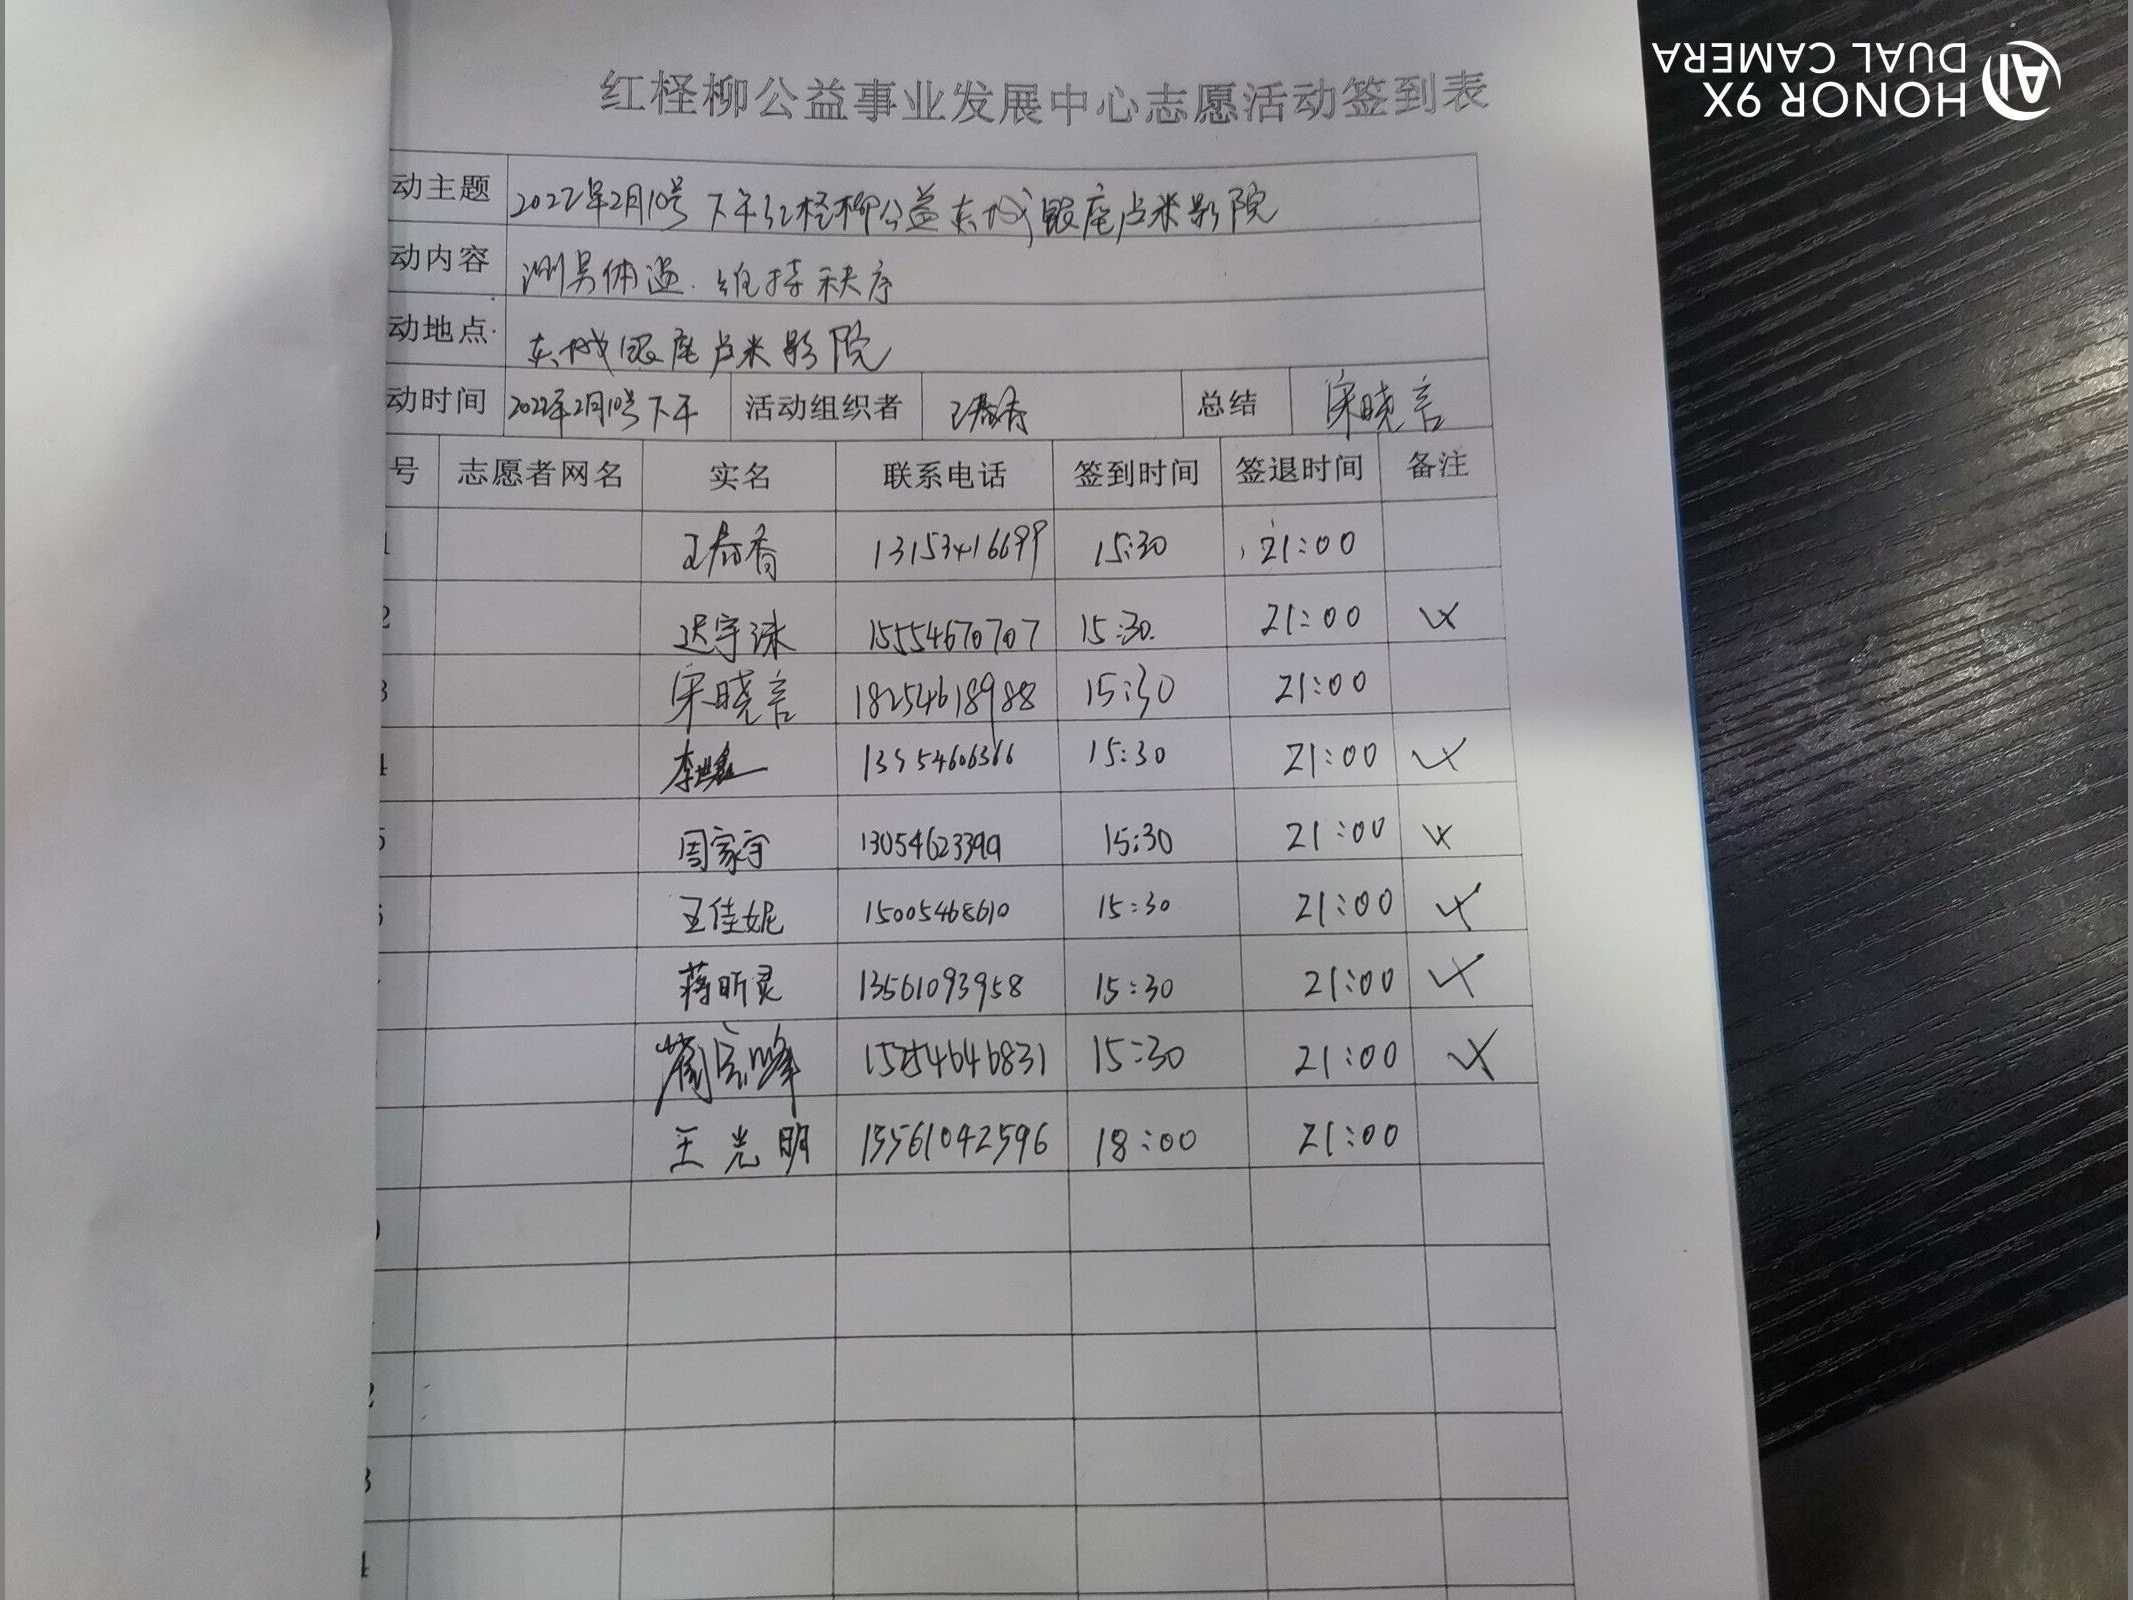 红柽柳公益事业发展中心志愿活动签到表
动主题 2022年2月10号下午红柽柳公益东城银座点米影院
动内容 测另体温.维持秩序
动地点 东城银座点米影院
动时间 2022年2月10号下午 活动组织者 王春香 总结 宋晓言
号 志愿者网名 实名 联系电话 签到时间 签退时间 备注
1 王春香 13153416699 15:30 21:00
2 迟宇涵 15554670707 15:30 21:00
3 宋晓言 18254618988 15:30 21:00
4 李 13954606366 15:30 21:00
5 周家宇 13054623399 15:30 21:00
王佳妮 15005468610 15:30 21:00
蒋昕灵 13561093958 15:30 21:00
蔺 峰 15254646831 15:30 21:00
王光明 15561042596 18:00 21:00
2
3
4
HONOR 9X
AI DUAL CAMERA